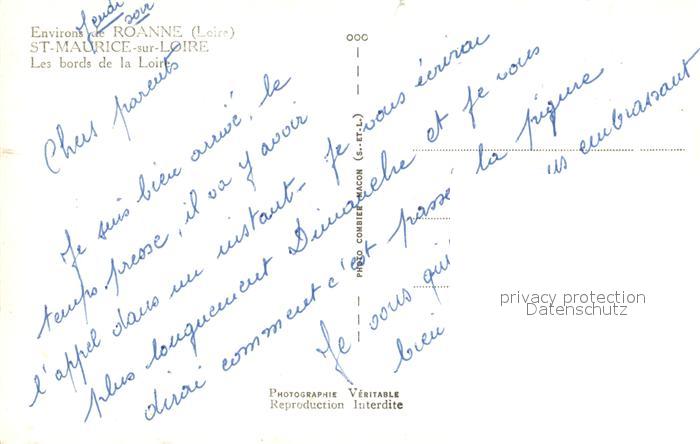 Jeudi
soir
Environs de ROANNE (Loire)
ST-MAURICE-sur-LOIRE
Les bords de la Loire
Chers parents
Je suis bien arrivé, le
temps presse, il va y avoir
l'appel dans un instant - Je vous écrirai
plus longuement Dimanche et Je vous
dirai comment c'est passé la piqure
Je vous qui
us embrassant
bien
PHOTO COMBIER MACON (S.-ET-L.)
PHOTOGRAPHIE VÉRITABLE
Reproduction Interdite
privacy protection
Datenschutz